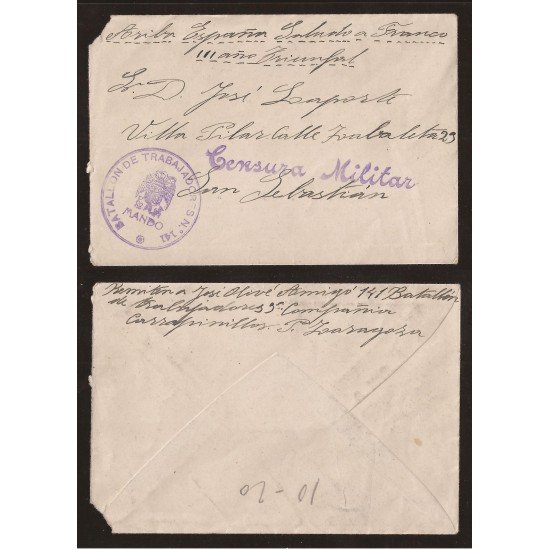 Ariba España Saludo a Franco
III año Triunfal
S. D. José Laporte
Villa Pilar Calle Zabaleta 23
San Sebastián
Censura Militar
BATALLÓN DE TRABAJADORES Nº 141
MANDO
Remiten a José Olivé Amigó 141 Batallón
de trabajadores 5ª Compañia
Garrapinillos P. Zaragoza
10-20